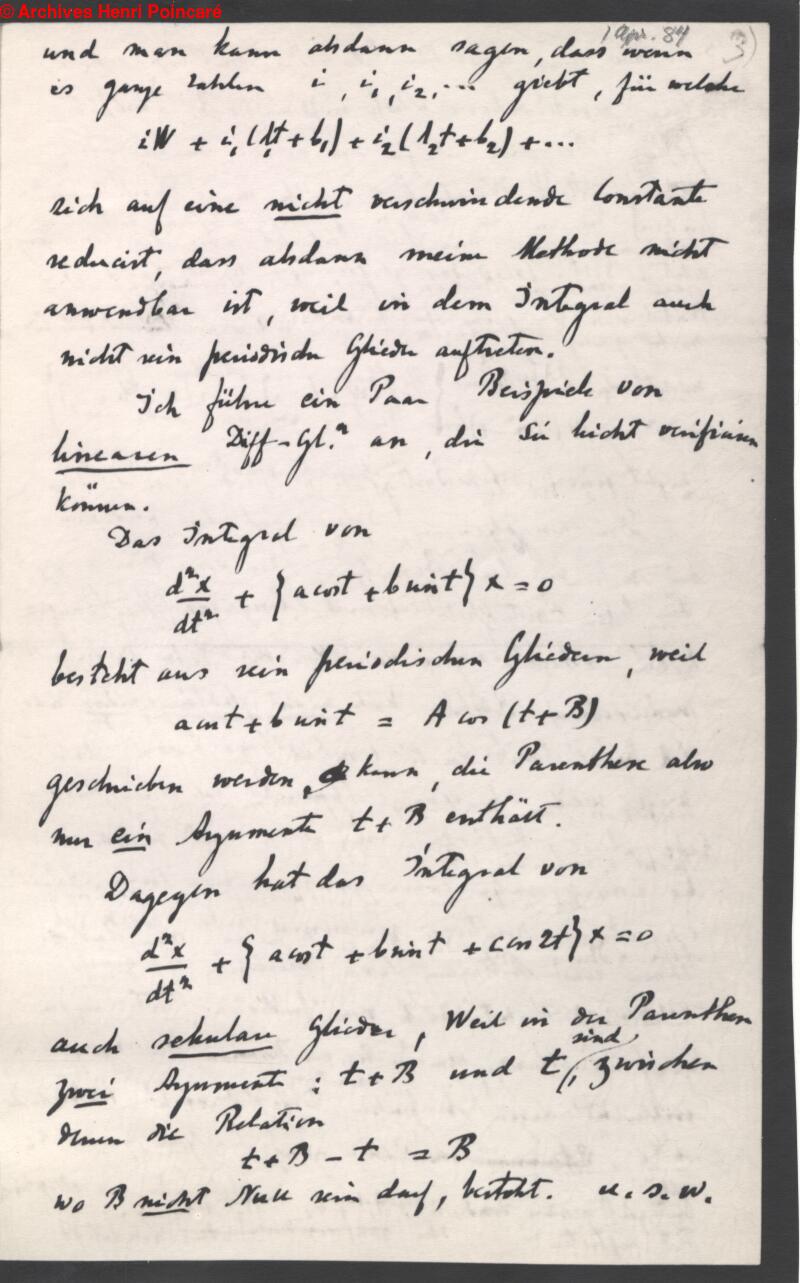 © Archives Henri Poincaré
1 Apr. 84 3)
und man kann alsdann sagen, dass wenn
es ganze Zahlen i, i₁, i₂, ... giebt, für welche
iW + i₁(λ₁t+b₁) + i₂(λ₂t+b₂) + ...
sich auf eine nicht verschwindende Constante
reducirt, dass alsdann meine Methode nicht
anwendbar ist, weil in dem Integral auch
nicht rein periodische Glieder auftreten.
Ich führe ein Paar Beispiele von
linearen Diff-Gl.ⁿ an, die Sie leicht verificiren
können.
Das Integral von
d²x/dt² + {a cos t + b sin t} x = 0
besteht aus rein periodischen Gliedern, weil
a cos t + b sin t = A cos (t+B)
geschrieben werden kann, die Parenthese also
nur ein Argumente t+B enthält.
Dagegen hat das Integral von
d²x/dt² + {a cos t + b sin t + c cos 2t} x = 0
auch sekulare Glieder, weil in der Parenthese
zwei Argumente: t+B und t, sind, zwischen
denen die Relation
t+B - t = B
wo B nicht Null sein darf, besteht. u. s. w.